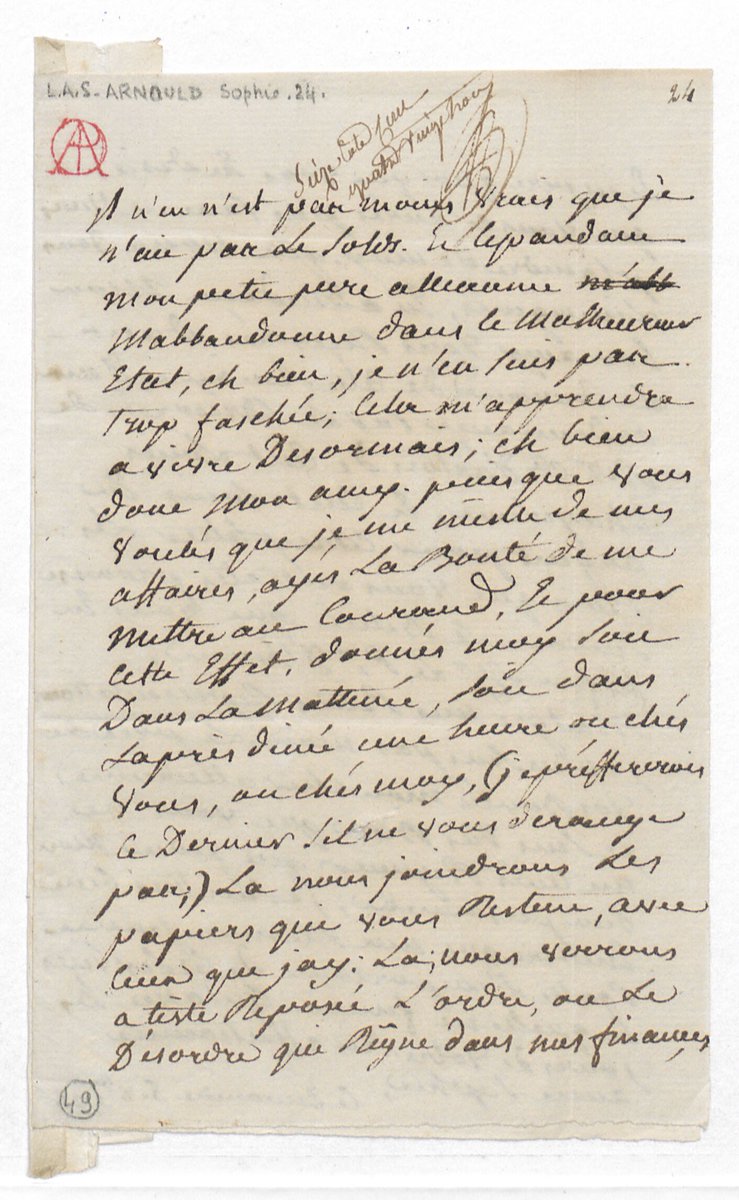 L.A.S - ARNOULD Sophie . 24 .
24
Piéce Cotée
quatre vingt trois
il n'en n'est pas moins vrais que je
n'aie pas Le Sols. Et Cepandant
mon petit pere alleaume
M'abbandonne dans ce Malheureux
Etat, eh bien, je n'en Suis pas
trop faschée; Cela m'apprendra
a vivre Desormais; eh bien
donc Mon amy. puisque vous
voulés que je me mesle de mes
affaires, ayés La Bonté de me
mettre au Courand, Et pour
cette Effet, donnés moy Soit
Dans La Mattinée, Soit dans
Laprès dinée une heure ou chés
vous, ou chés moy, (je préffererois
Ce Dernier S'il ne vous derange
pas;) La nous joindrons Les
papiers qui vous Restent, avec
Ceux que jay: La; nous verrons
a teste Reposée L'ordre, ou Le
Désordre qui Règne dans mes finances
49